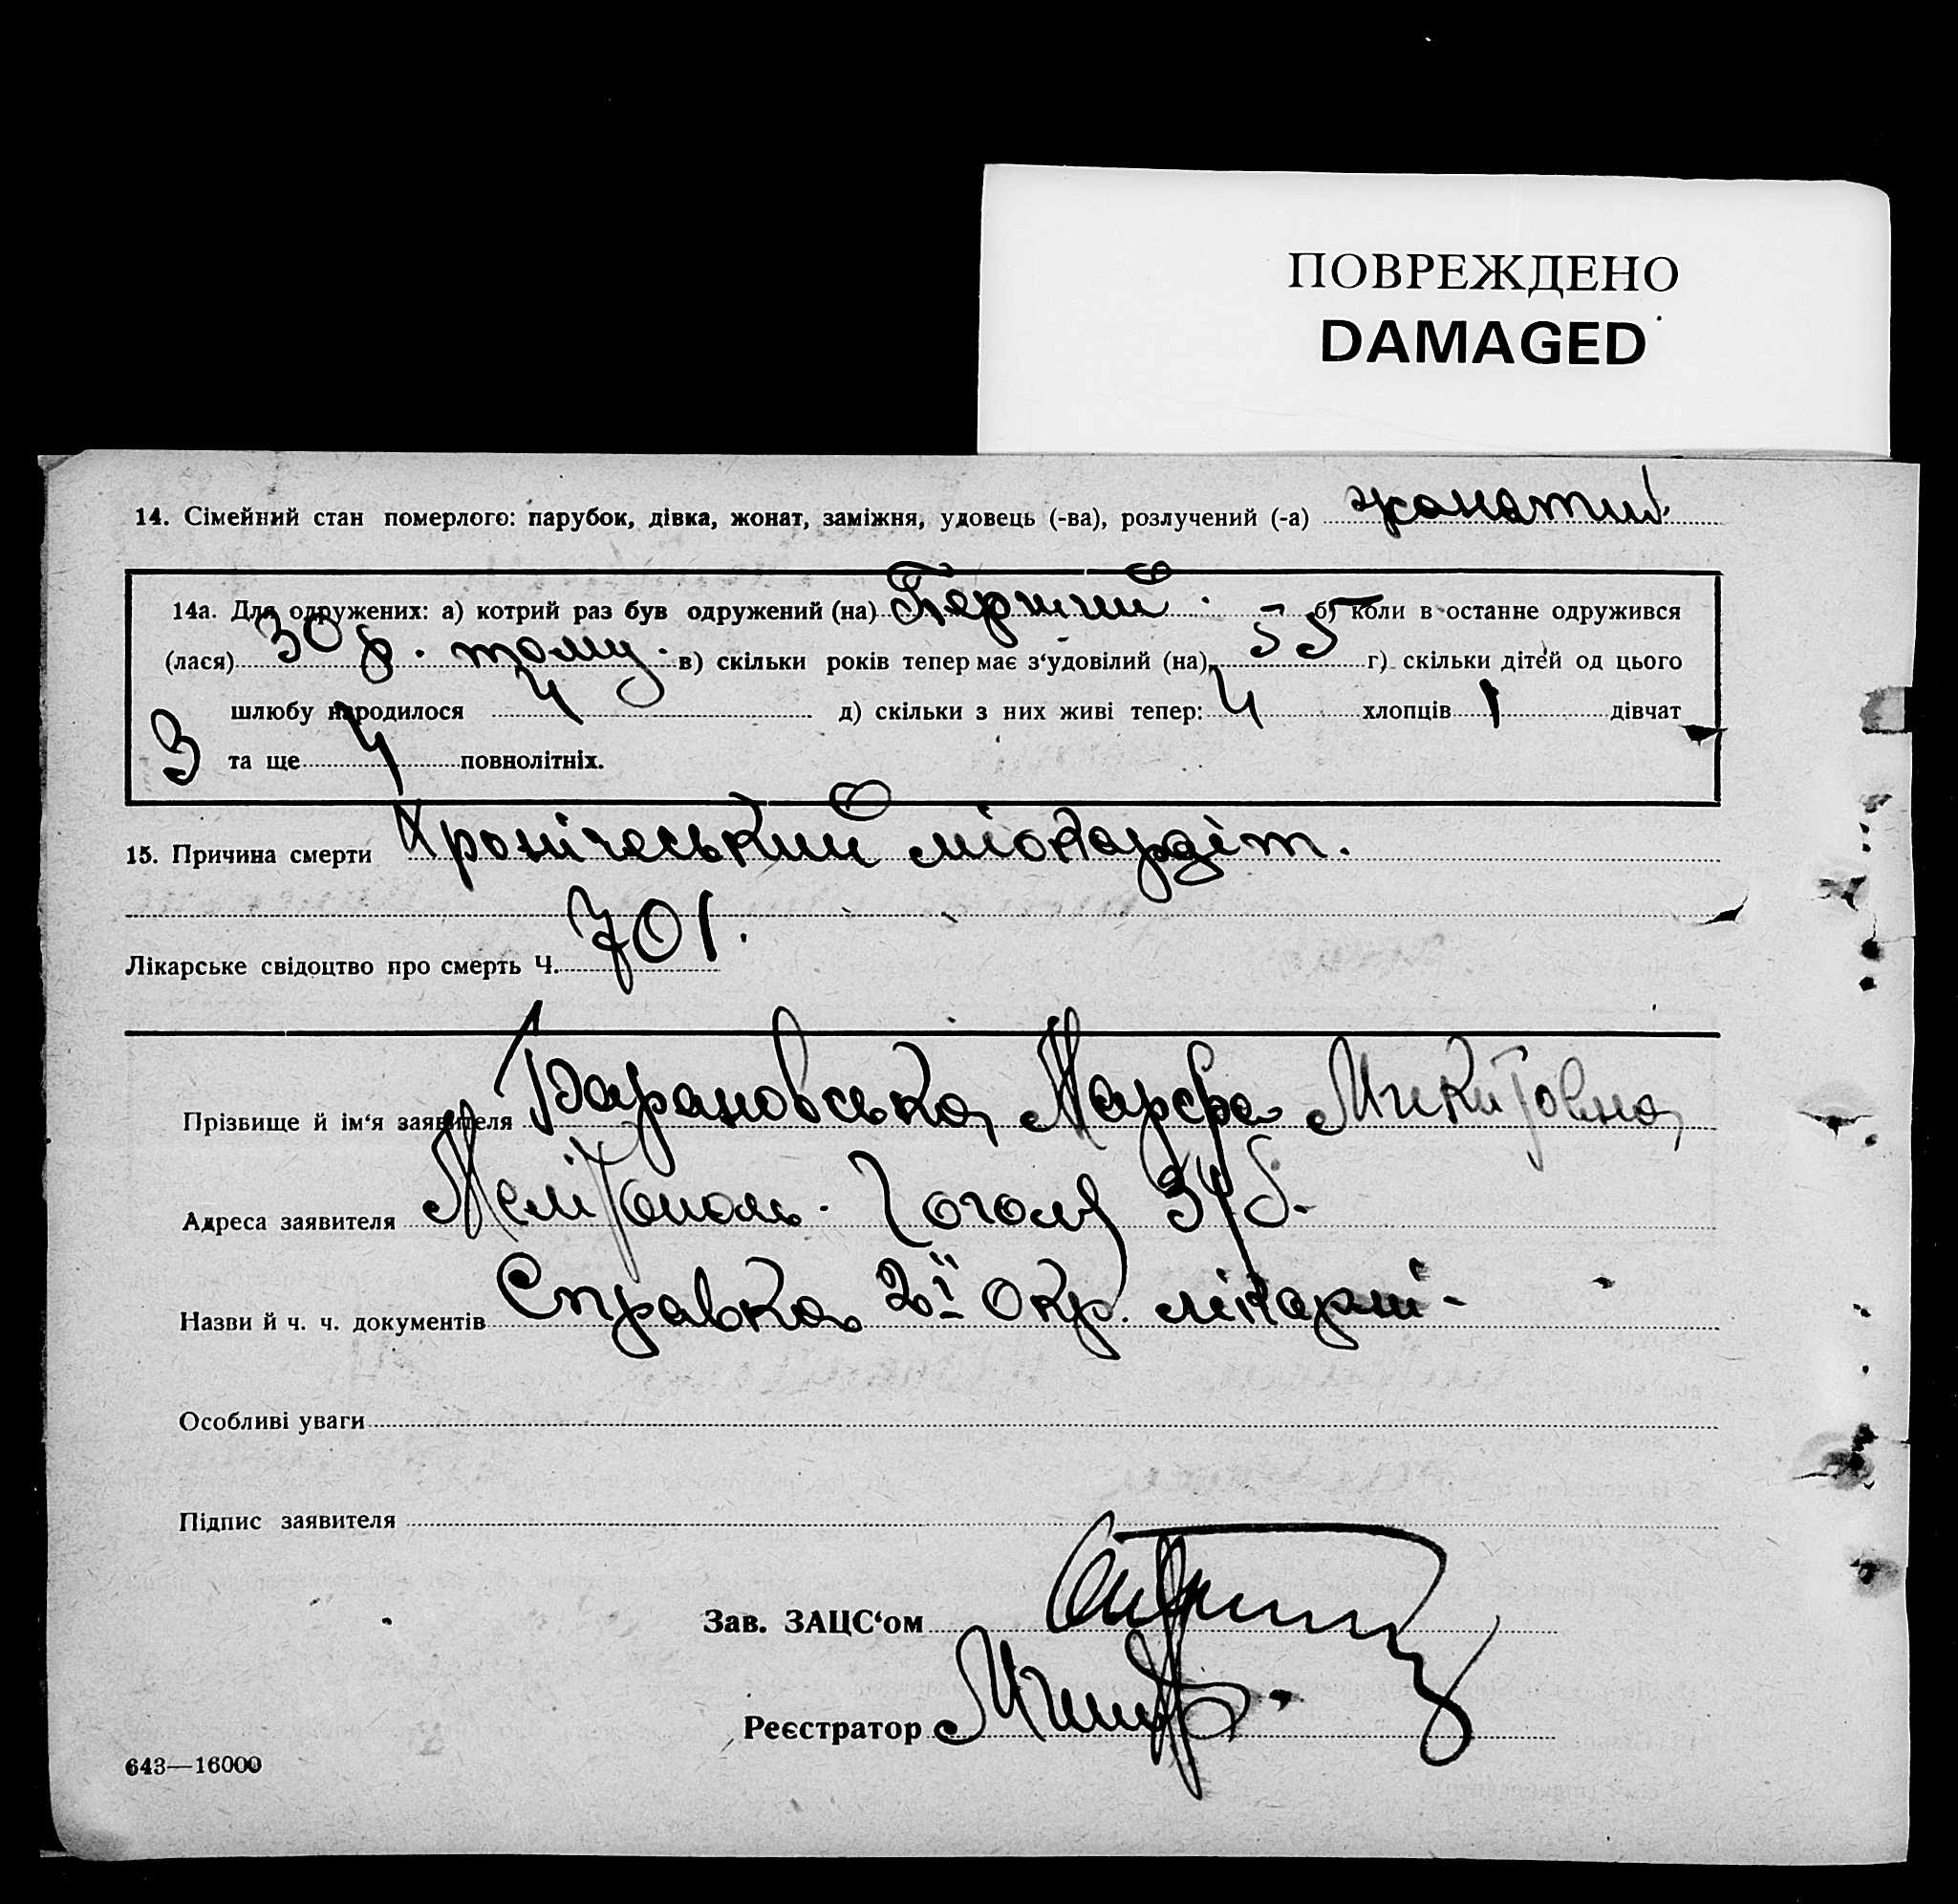 ПОВРЕЖДЕНО
DAMAGED
14. Сімейний стан померлого: парубок, дівка, жонат, заміжня, удовець (-ва), розлучений (-а) жонатий.
14а. Для одружених: а) котрий раз був одружений (на) Перший. б) коли в останне одружився
(лася) 30 р. тому. в) скільки років тепер має з‘удовілий (на) 55 г) скільки дітей од цього
шлюбу народилося 4 д) скільки з них живі тепер: 4 хлопців 1 дівчат
3 та ще 4 повнолітніх.
15. Причина смерти Хронічеський міокардіт.
Лікарське свідоцтво про смерть Ч. 701.
Прізвище й ім‘я заявителя Барановська Марфа Микитовна
Адреса заявителя Мелітополь. Гоголя 34
Назви й ч. ч. документів Справка 2ї Окр. лікарні-
Особливі уваги
Підпис заявителя
Зав. ЗАЦС‘ом
Реєстратор
643—16000